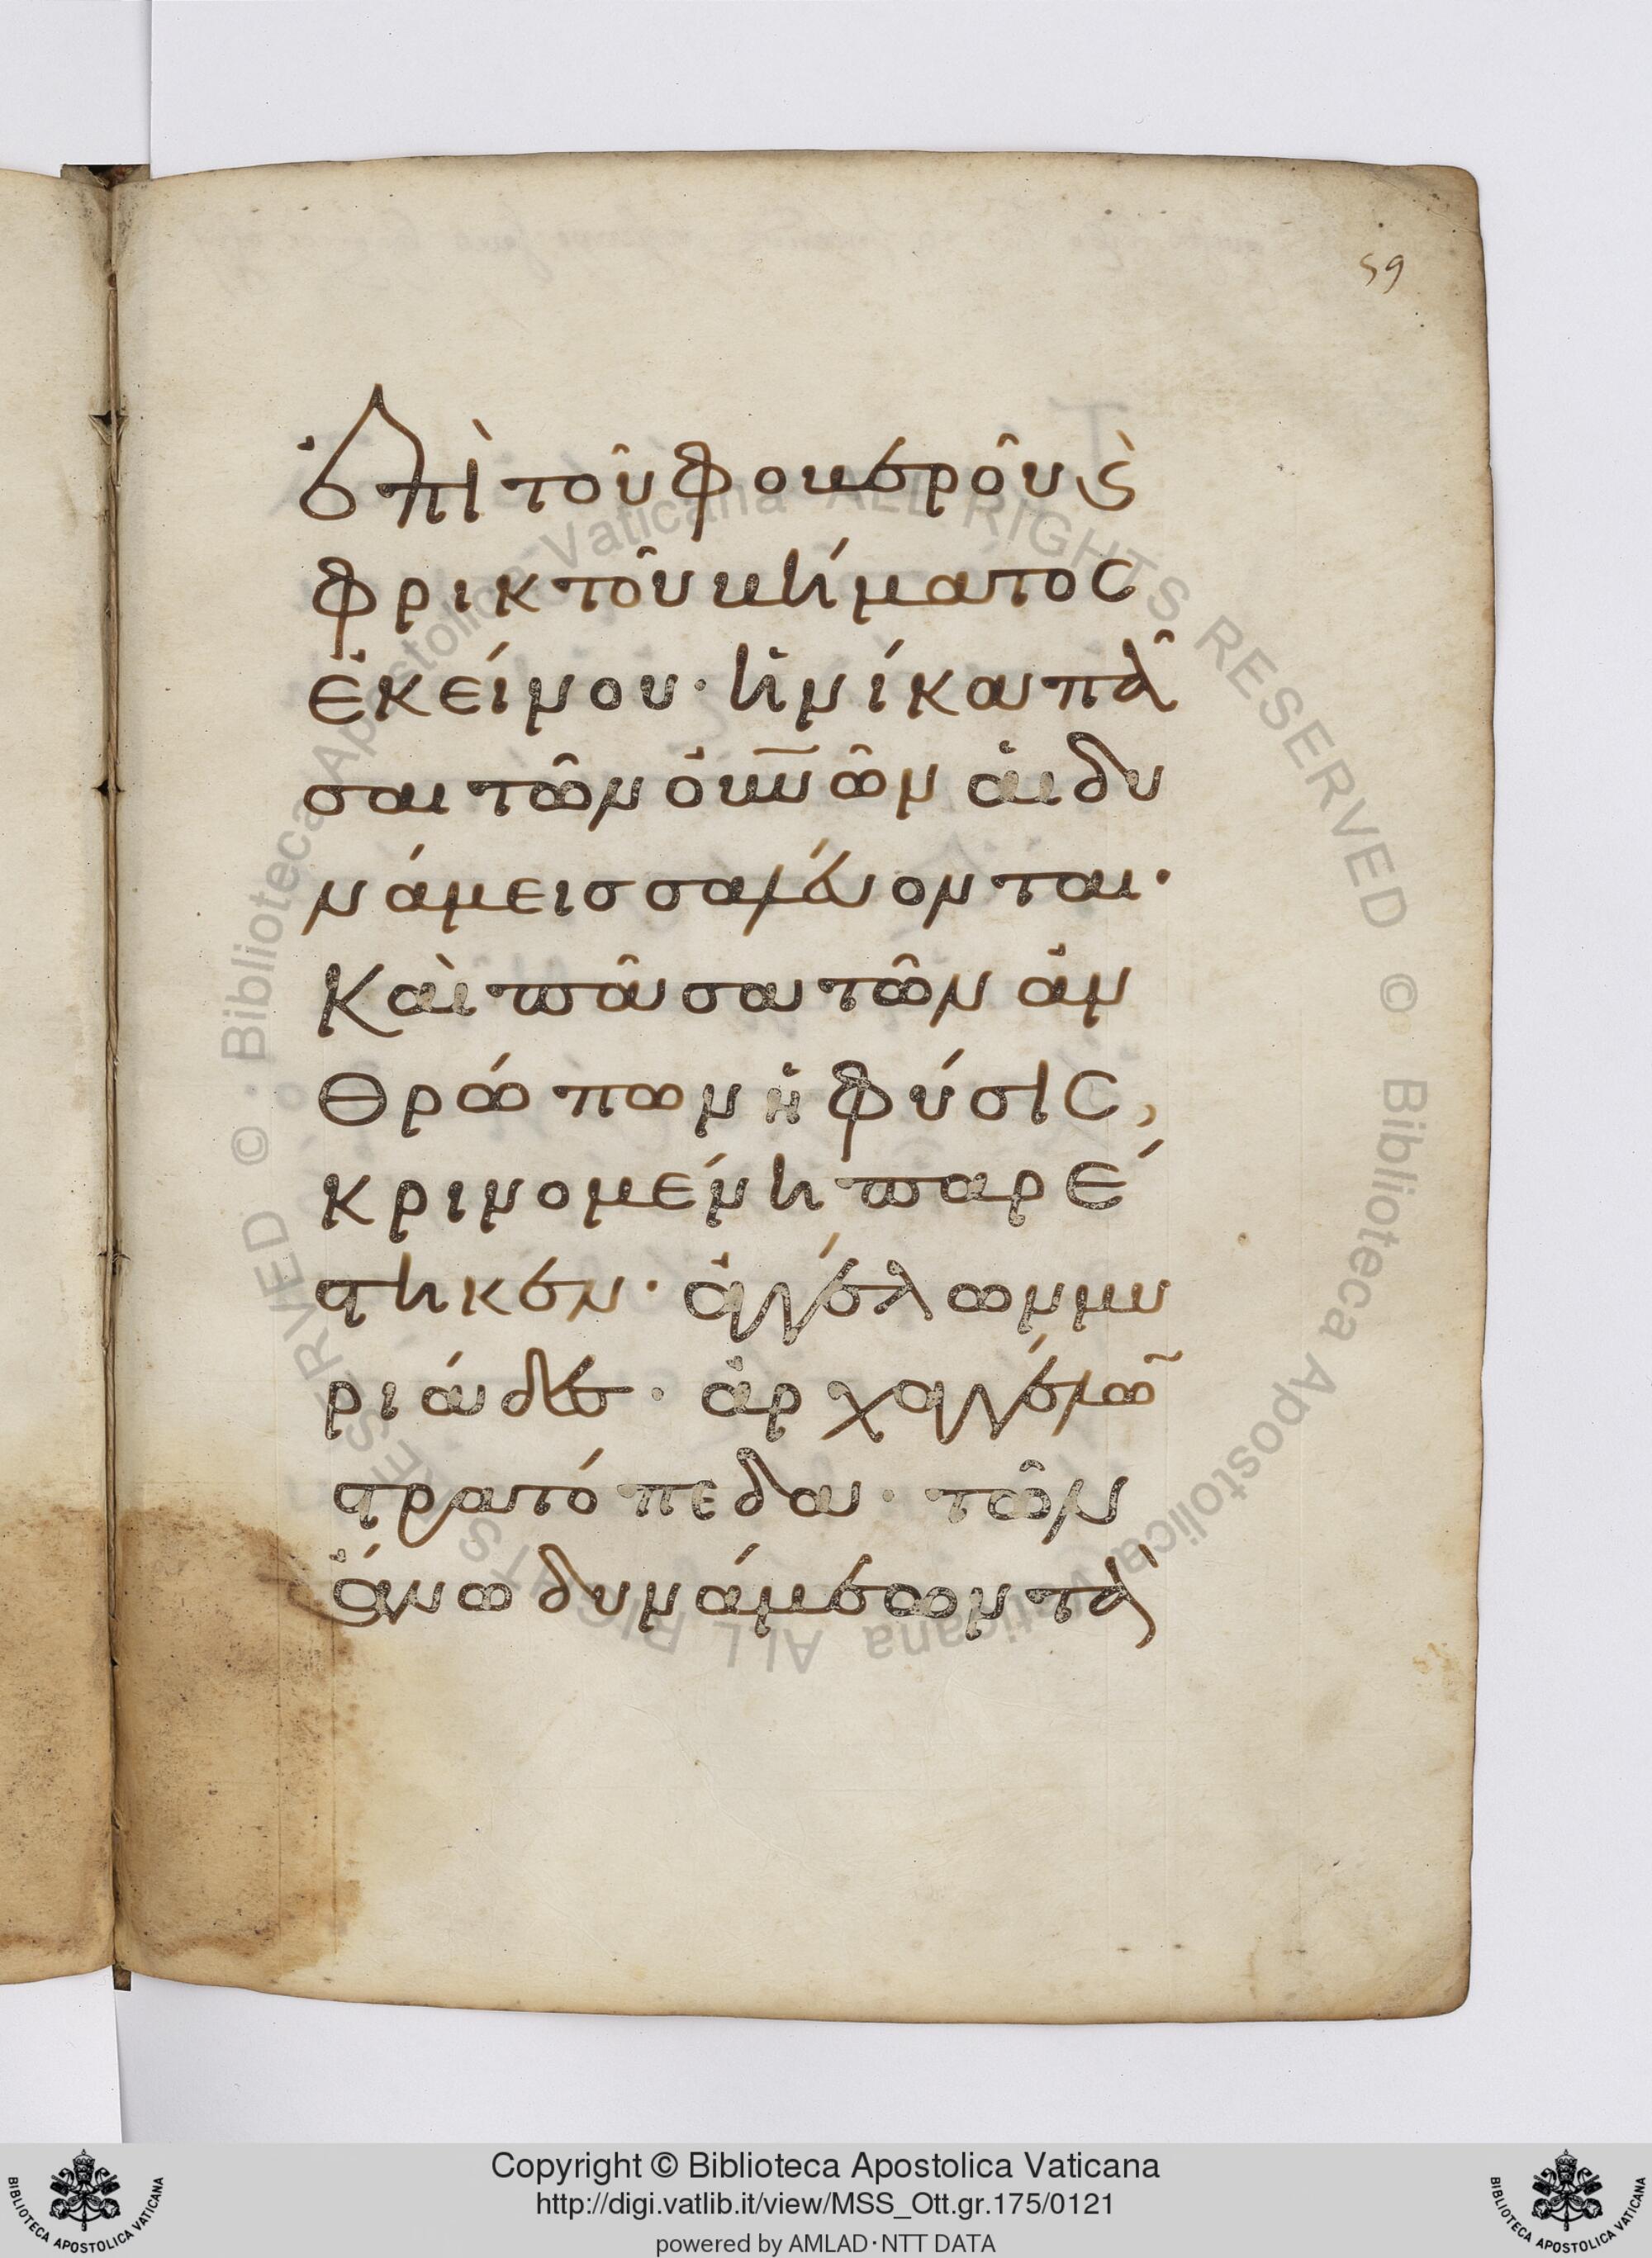 59
ἐπὶ τοῦ φοβεροῦ ϗ
φρικτοῦ βήματος
ἐκείνου· ἡνίκα πᾶ
σαι τῶν οὐνῶν αἱ δυ
νάμεις σαλεύονται·
Καὶ πᾶσα τῶν ἀν
θρώπων ἡ φύσις,
κρινομένη παρέ
στηκεν· ἀγγέλων μυ
ριάδες· ἀρχαγγέλω̃
στρατόπεδα· τῶν
ἄνω δυνάμεων τὰ
© · Biblioteca Apostolica Vaticana ALL RIGHTS RESERVED © · Biblioteca Apostolica Vaticana ALL RIGHTS RESERVED
BIBLIOTECA APOSTOLICA VATICANA
Copyright © Biblioteca Apostolica Vaticana
http://digi.vatlib.it/view/MSS_Ott.gr.175/0121
powered by AMLAD·NTT DATA
BIBLIOTECA APOSTOLICA VATICANA